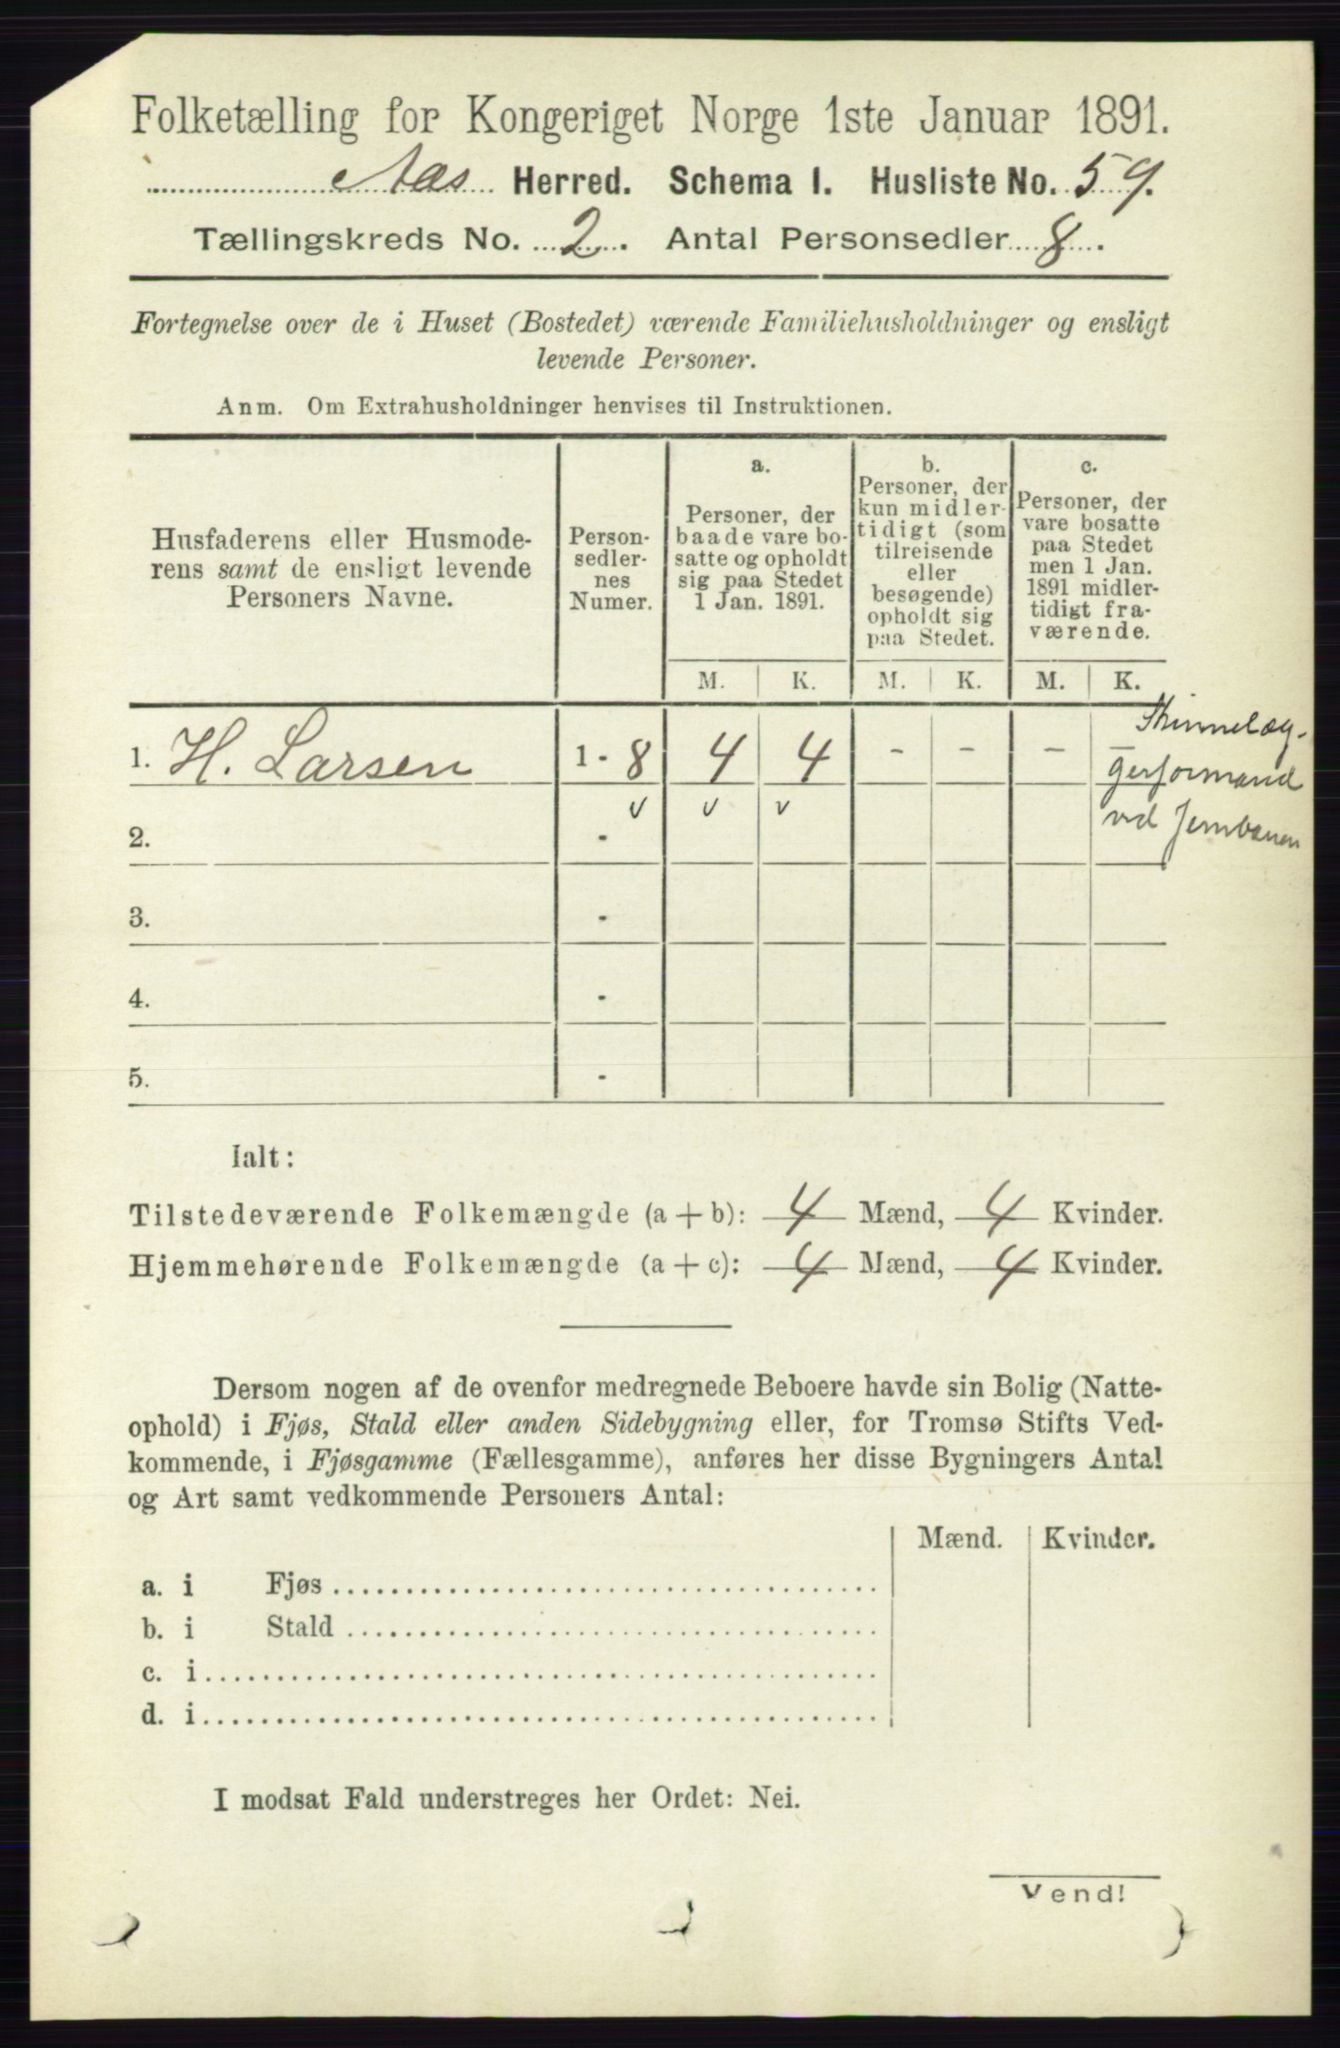 Folketælling for Kongeriget Norge 1ste Januar 1891.
Aas Herred. Schema I. Husliste No. 59.
Tællingskreds No. 2. Antal Personsedler 8.
Fortegnelse over de i Huset (Bostedet) værende Familiehusholdninger og ensligt
levende Personer.
Anm. Om Extrahusholdninger henvises til Instruktionen.
Husfaderens eller Husmode-
rens samt de ensligt levende
Personers Navne.
Person-
sedler-
nes
Numer.
a.
Personer, der
baade vare bo-
satte og opholdt
sig paa Stedet
1 Jan. 1891.
b.
Personer, der
kun midler-
tidigt (som
tilreisende
eller
besøgende)
opholdt sig
paa Stedet.
c.
Personer, der
vare bosatte
paa Stedet
men 1 Jan.
1891 midler-
tidigt fra-
værende.
M. K. M. K. M. K.
1. H. Larsen 1 - 8 4 4 - - - -
Skinnelæg-
gerformand
ved Jernbanen
v v v
2. -
3. -
4. -
5. -
Ialt:
Tilstedeværende Folkemængde (a + b): 4 Mænd, 4 Kvinder.
Hjemmehørende Folkemængde (a + c): 4 Mænd, 4 Kvinder.
Dersom nogen af de ovenfor medregnede Beboere havde sin Bolig (Natte-
ophold) i Fjøs, Stald eller anden Sidebygning eller, for Tromsø Stifts Ved-
kommende, i Fjøsgamme (Fællesgamme), anføres her disse Bygningers Antal
og Art samt vedkommende Personers Antal:
Mænd. Kvinder.
a. i Fjøs
b. i Stald
c. i
d. i
I modsat Fald understreges her Ordet: Nei.
Vend!